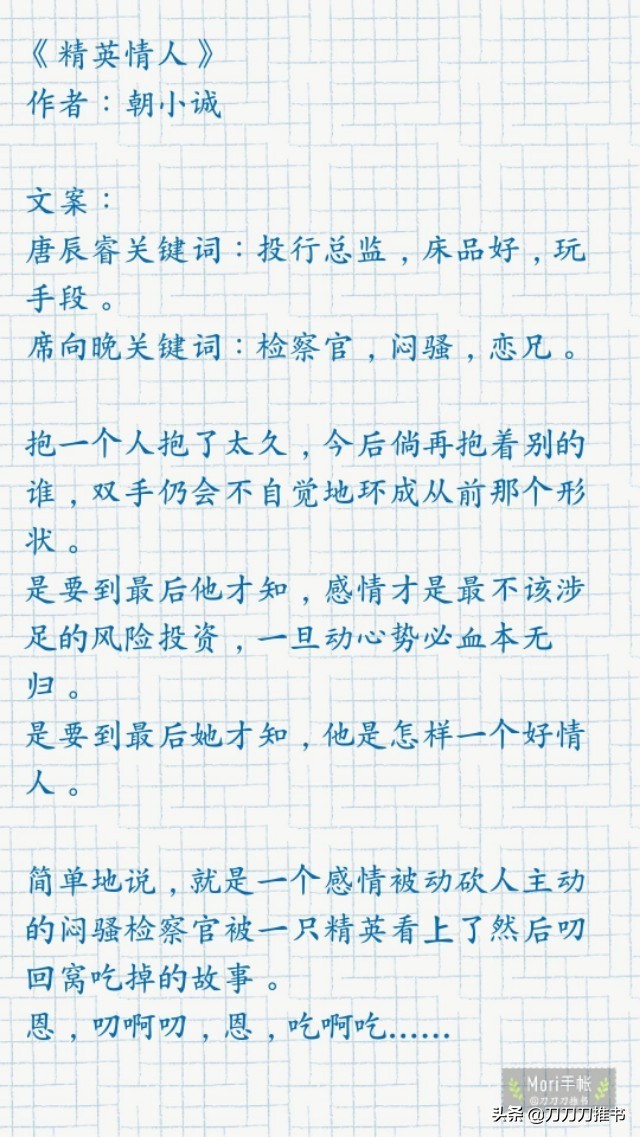 《精英情人》
作者：朝小诚
文案：
唐辰睿关键词：投行总监，床品好，玩
手段。
席向晚关键词：检察官，闷骚，恋兄。
抱一个人抱了太久，今后倘再抱着别的
谁，双手仍会不自觉地环成从前那个形
状。
是要到最后他才知，感情才是最不该涉
足的风险投资，一旦动心势必血本无
归。
是要到最后她才知，他是怎样一个好情
人。
简单地说，就是一个感情被动砍人主动
的闷骚检察官被一只精英看上了然后叨
回窝吃掉的故事。
恩，叨啊叨，恩，吃啊吃……
Mori手帐
@刀刀刀推书
头条 @刀刀刀推书